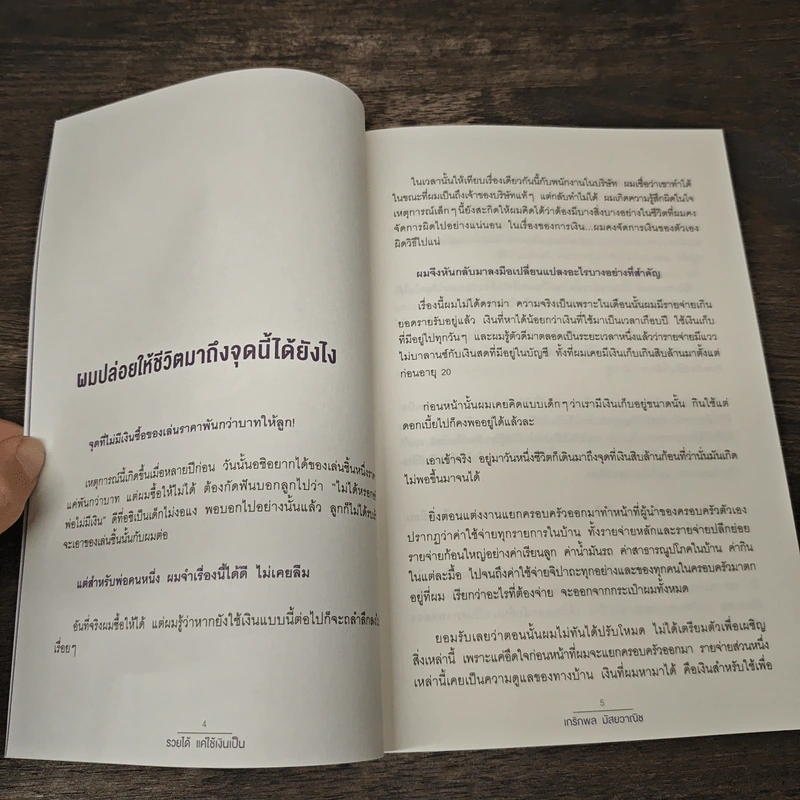 ผมปล่อยให้ชีวิตมาถึงจุดนี้ได้ยังไง
จุดที่ไม่มีเงินซื้อของเล่นราคาพันกว่าบาทให้ลูก!
เหตุการณ์นี้เกิดขึ้นเมื่อหลายปีก่อน วันนั้นอชิอยากได้ของเล่นชิ้นหนึ่ง
แค่พันกว่าบาท แต่ผมซื้อให้ไม่ได้ ต้องกัดฟันบอกลูกไปว่า
พ่อไม่มีเงิน" ดีที่อชิเป็นเด็กไม่งอแง พอบอกไปอย่างนั้นแล้ว ลูกก็ไม่ได้
จะเอาของเล่นชิ้นนั้นกับผมต่อ
แต่สำหรับพ่อคนหนึ่ง ผมจำเรื่องนี้ได้ดี ไม่เคยลืม
อันที่จริงผมซื้อให้ได้ แต่ผมรู้ว่าหากยังใช้เงินแบบนี้ต่อไปก็จะถลำลึกลง
เรื่อยๆ
4
รวยได้ แค่ใช้เงินเป็น
ในเวลานั้นให้เทียบเรื่องเดียวกันนี้กับพนักงานในบริษัท ผมเชื่อว่าเขาทำได้
ในขณะที่ผมเป็นถึงเจ้าของบริษัทแท้ๆ แต่กลับทำไม่ได้ ผมเกิดความรู้สึกผิดในใจ
เหตุการณ์เล็กๆ นี้ยังสะกิดให้ผมคิดได้ว่าต้องมีบางสิ่งบางอย่างในชีวิตที่ผมคง
จัดการผิดไปอย่างแน่นอน ในเรื่องของการเงิน...ผมคงจัดการเงินของตัวเอง
ผิดวิธีไปแน่
ผมจึงหันกลับมาลงมือเปลี่ยนแปลงอะไรบางอย่างที่สำคัญ
เรื่องนี้ผมไม่ได้ดราม่า ความจริงเป็นเพราะในเดือนนั้นผมมีรายจ่ายเกิน
ยอดรายรับอยู่แล้ว เงินที่หาได้น้อยกว่าเงินที่ใช้มาเป็นเวลาเกือบปี ใช้เงินเก็บ
ที่มีอยู่ไปทุกวันๆ และผมรู้ตัวดีมาตลอดเป็นระยะเวลาหนึ่งแล้วว่ารายจ่ายมีแวว
ไม่บาลานซ์กับเงินสดที่มีอยู่ในบัญชี ทั้งที่ผมเคยมีเงินเก็บเกินสิบล้านมาตั้งแต่
ก่อนอายุ 20
ก่อนหน้านั้นผมเคยคิดแบบเด็กๆ ว่าเรามีเงินเก็บอยู่ขนาดนั้น กินใช้แต่
ดอกเบี้ยไปก็คงพออยู่ได้แล้วละ
เอาเข้าจริง อยู่มาวันหนึ่งชีวิตก็เดินมาถึงจุดที่เงินสิบล้านก้อนที่ว่านั่นมันเกิด
ไม่พอขึ้นมาจนได้
ยิ่งตอนแต่งงานแยกครอบครัวออกมาทำหน้าที่ผู้นำของครอบครัวตัวเอง
ปรากฏว่าค่าใช้จ่ายทุกรายการในบ้าน ทั้งรายจ่ายหลักและรายจ่ายปลีกย่อย
รายจ่ายก้อนใหญ่อย่างค่าเรียนลูก ค่าน้ำมันรถ ค่าสาธารณูปโภคในบ้าน ค่ากิน
ในแต่ละมื้อ ไปจนถึงค่าใช้จ่ายจิปาถะทุกอย่างและของทุกคนในครอบครัวมาตก
อยู่ที่ผม เรียกว่าอะไรที่ต้องจ่าย จะออกจากกระเป๋าผมทั้งหมด
ยอมรับเลยว่าตอนนั้นผมไม่ทันได้ปรับโหมด ไม่ได้เตรียมตัวเพื่อเผชิญ
สิ่งเหล่านี้ เพราะแค่อึดใจก่อนหน้าที่ผมจะแยกครอบครัวออกมา รายจ่ายส่วนหนึ่ง
เหล่านี้เคยเป็นความดูแลของทางบ้าน เงินที่ผมหามาได้ คือเงินสำหรับใช้เพื่อ
5
เกริกพล มัสยวาณิช